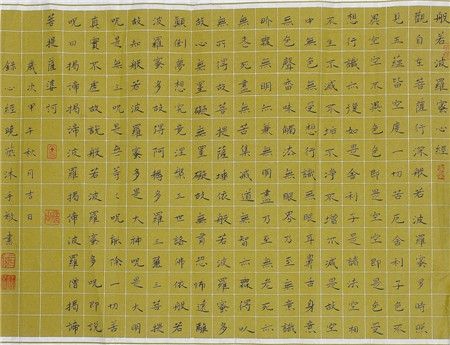 般若波羅蜜心經
觀自在菩薩行深般若波羅蜜多時照
見五蘊皆空度一切苦厄舍利子色不
異空空不異色色即是空空即是色受
想行識亦復如是舍利子是諸法空相
不生不滅不垢不淨不增不減是故空
中無色無受想行識無眼耳鼻舌身意
無色聲香味觸法無眼界乃至無意識
界無無明亦無無明盡乃至無老死亦
無老死盡無苦集滅道無智亦無得以
無所得故菩提薩埵依般若波羅蜜多
故心無罣礙無罣礙故無有恐怖遠離
顛倒夢想究竟涅槃三世諸佛依般若
波羅蜜多故得阿耨多羅三藐三菩提
故知般若波羅蜜多是大神呪是大明
呪是無上呪是無等々呪能除一切苦
真實不虛故說般若波羅蜜多呪即說
呪曰揭諦揭諦波羅揭諦波羅僧揭諦
菩提薩婆訶
歲次甲子秋月吉日
錄心經曉嵐沐手敬書